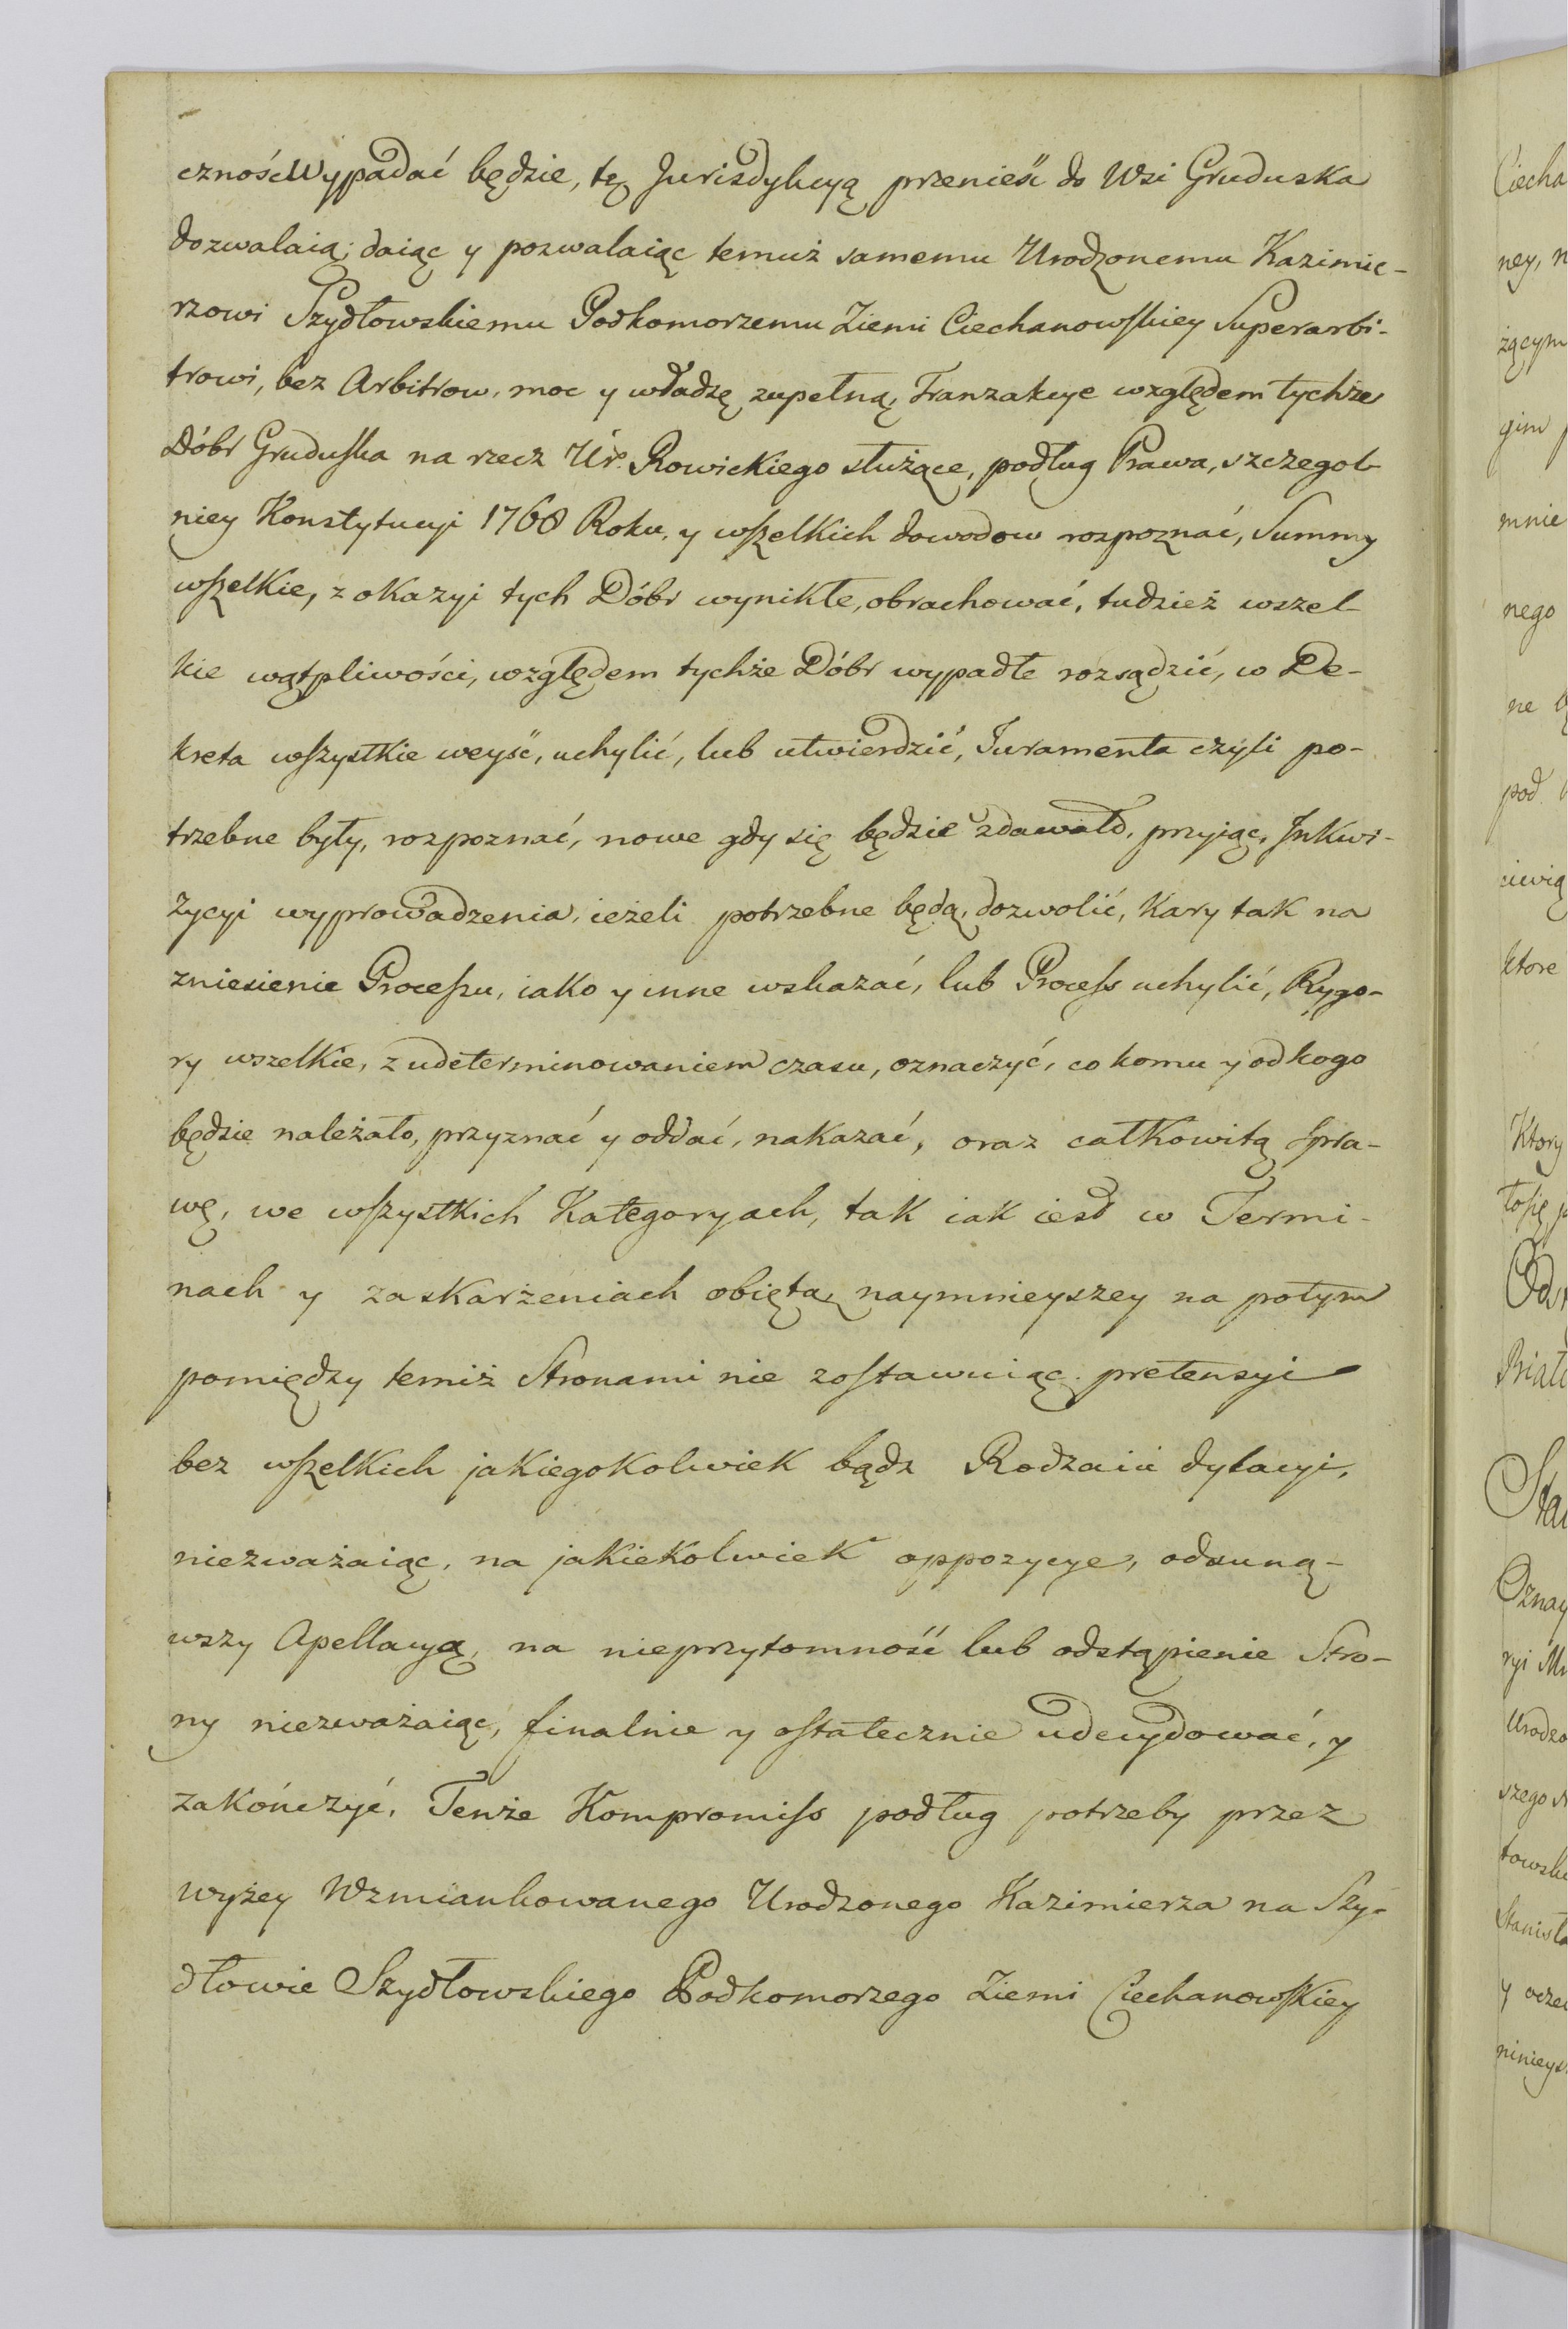 czność wypadać będzie, tę Jurisdykcyą przenieść do Wsi Gruduska
dozwalaią; daiąc y pozwalaiąc temuż samemu Urodzonemu Kazimie-
rzowi Szydłowskiemu Podkomorzemu Ziemi Ciechanowskiey Superarbi-
trowi, bez Arbitrow, moc y władzę zupełną, Tranzakcye względem tychże
Dóbr Gruduska na rzecz Ur. Rowickiego służące, podług Prawa, szczegol-
niey Konstytucyi 1768 Roku, y wszelkich dowodow rozpoznać, Summy
wszelkie, z okazyi tych Dóbr wynikłe, obrachować, tudzież wszel-
kie wątpliwości, względem tychże Dóbr wypadłe rozsądzić, w De-
kreta wszystkie weyść, uchylić, lub utwierdzić, Juramenta czyli po-
trzebne były, rozpoznać, nowe gdy się będzie zdawało, przyjąc, Inkwi-
zycyi wyprowadzenia, ieżeli potrzebne będą, dozwolić, Kary tak na
zniesienie Processu, iako y inne wskazać, lub Process uchylić, Rygo-
ry wszelkie, z udeterminowaniem czasu, oznaczyć, co komu y od kogo
będzie należało, przyznać y oddać, nakazać, oraz całkowitą spra-
wę, we wszystkich Kategoryach, tak iak iest w Termi-
nach y zaskarżeniach obiętą, naymnieyszey na potym
pomiędzy temiż Stronami nie zostawuiąc pretensyi
bez wszelkich jakiegokolwiek bądz Rodzaiu dylacyi,
niezważaiąc, na jakiekolwiek oppozycye, odsuną-
wszy Apellacyą, na nieprzytomność lub odstąpienie Stro-
ny niezważaiąc, finalnie y ostatecznie udecydować, y
zakończyć. Tenże Kompromiss podług potrzeby przez
wyżey Wzmiankowanego Urodzonego Kazimierza na Szy-
dłowie Szydłowskiego Podkomorzego Ziemi Ciechanowskiey